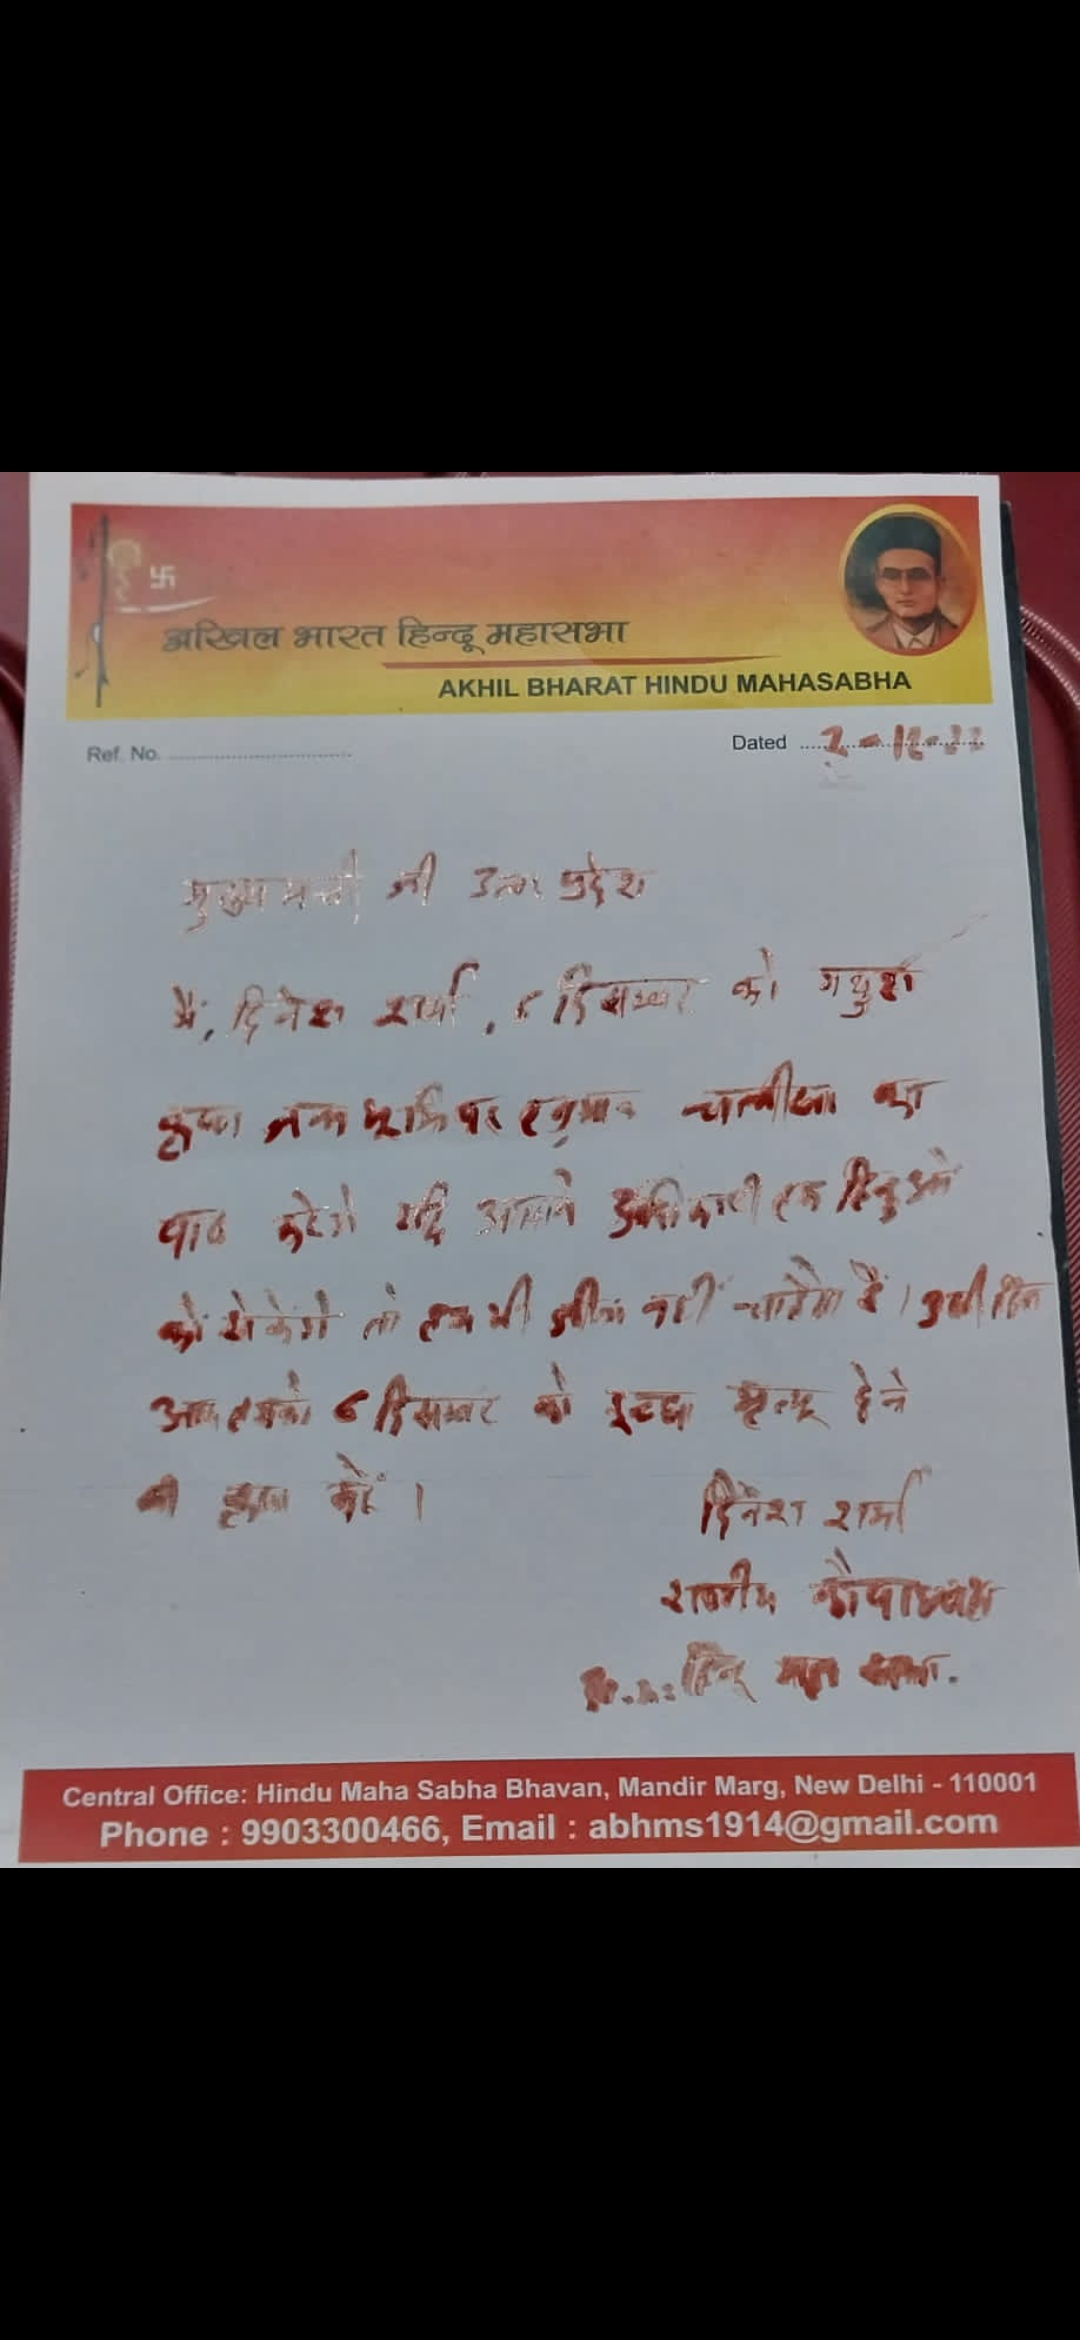 अखिल भारत हिन्दू महासभा
AKHIL BHARAT HINDU MAHASABHA
Ref. No.
Dated
मुख्य मन्त्री जी उत्तर प्रदेश
मैं, दिनेश शर्मा, ६ दिसम्बर को मथुरा
कृष्ण जन्म भूमि पर हनुमान चालीसा का
पाठ करेगे यदि हम हिन्दुओ
को रोकेगे तो हम भी जीना नहीं चाहते हैं। उसी दिन
आप हमको ६ दिसम्बर को इच्छा मृत्यु देने
की कृपा करें।
दिनेश शर्मा
कोषाध्यक्ष
हिन्दू महा सभा.
Central Office: Hindu Maha Sabha Bhavan, Mandir Marg, New Delhi - 110001
Phone : 9903300466, Email : abhms1914@gmail.com